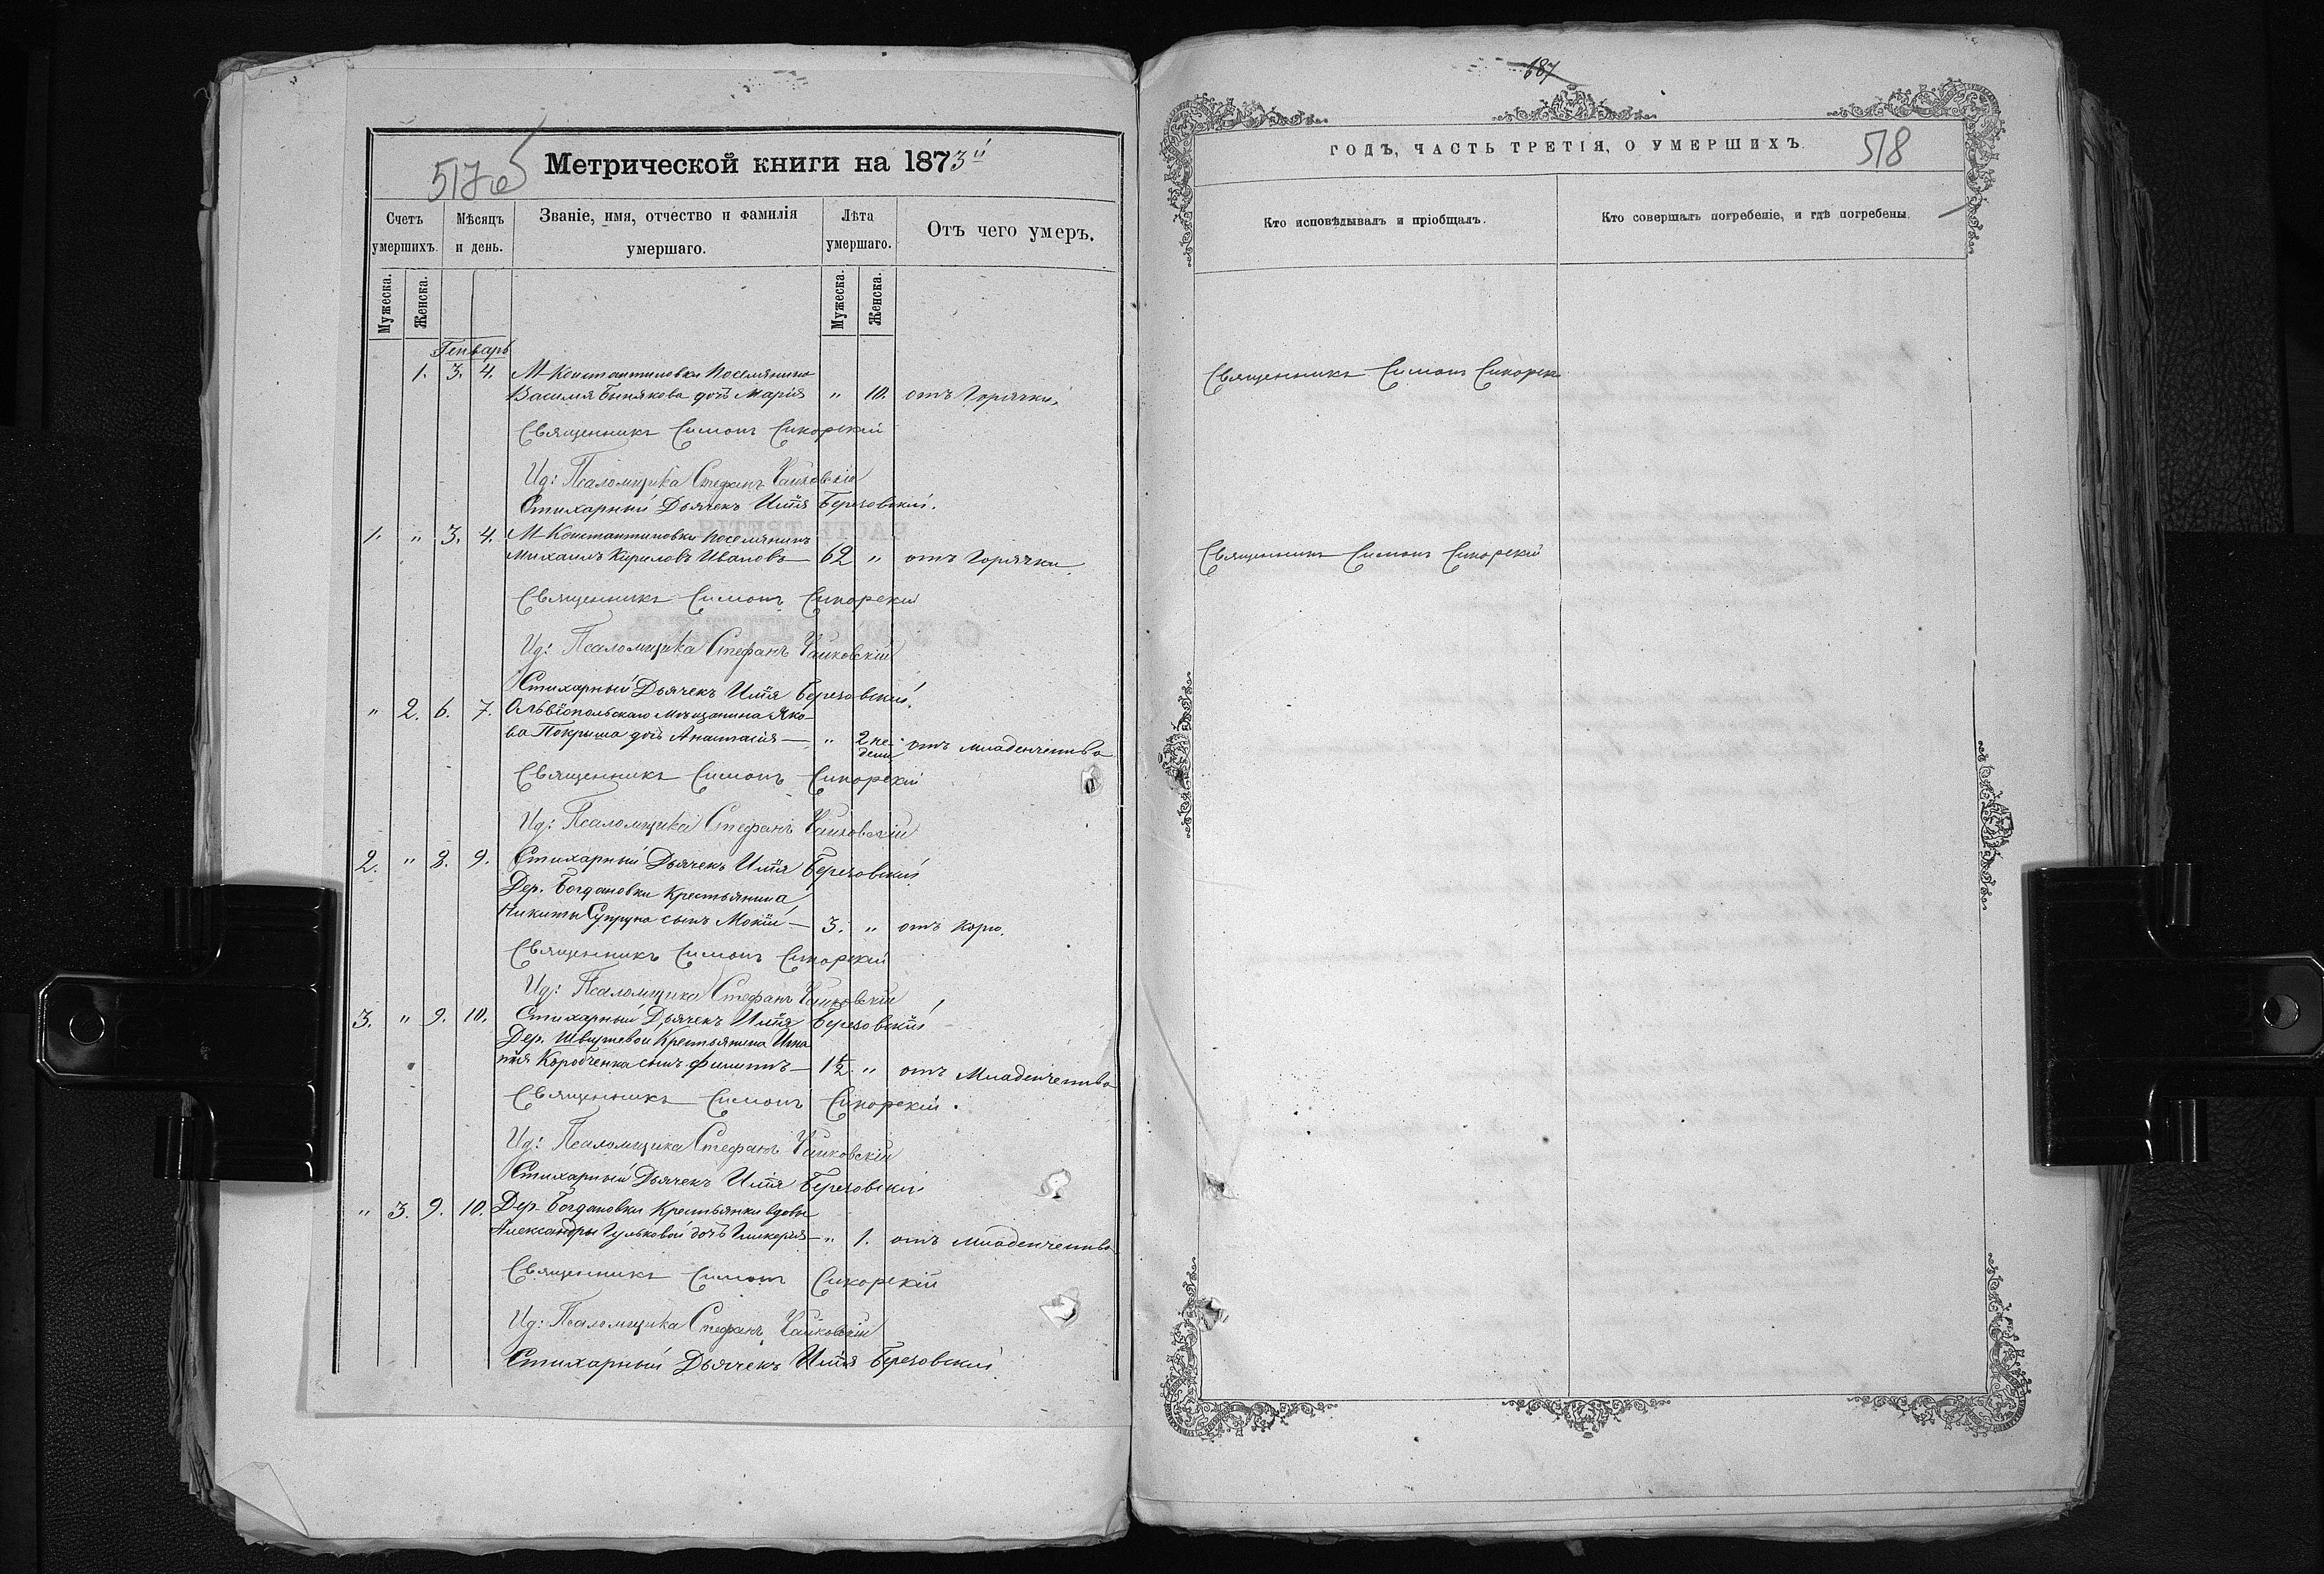 517об
Метрической книги на 1873й
Счетъ умершихъ.
Мѣсяцъ и день.
Званіе, имя, отчество и фамилія умершаго.
Лѣта умершаго.
Отъ чего умеръ.
Мужеска.
Женска.
Мужеска.
Женска.
Генварь
1. 3. 4. М Константиновки поселянина
Василія Бынякова дочь Марія " 10. отъ горячки.
Священникъ Симонъ Сикорскій
Ид: Псаломщика Стефанъ Чайковскій
Стихарный Дьячекъ Илія Березовскій.
1. " 3. 4. М Константиновки поселянинъ
Михаилъ Кириловъ Ивановъ 62 " отъ горячки.
Священникъ Симонъ Сикорскій
Ид: Псаломщика Стефанъ Чайковскій
Стихарный Дьячекъ Илія Березовскій.
" 2. 6. 7. Ольвіопольскаго мѣщанина Яко-
ва Покраша дочь Анастасія " 2 не-
дели отъ младенчества
Священникъ Симонъ Сикорскій
Ид: Псаломщика Стефанъ Чайковскій
2. " 8. 9. Стихарный Дьячекъ Илія Березовскій
Дер. Богдановки Крестьянина
Никиты Супруна сынъ Мокій 3. " отъ кори.
Священникъ Симонъ Сикорскій
Ид: Псаломщика Стефанъ Чайковскій
3. " 9. 10. Стихарный Дьячекъ Илія Березовскій
Дер. Крестьянина Игна
тія Коробченка сынъ Филиппъ 1½ " отъ Младенчества
Священникъ Симонъ Сикорскій.
Ид: Псаломщика Стефанъ Чайковскій
Стихарный Дьячекъ Илія Березовскій
" 3. 9. 10. Дер. Богдановки Крестьянки вдовы
Александры Гульковой дочь Гликерія " 1. отъ младенчества
Священникъ Симонъ Сикорскій
Ид: Псаломщика Стефанъ Чайковскій
Стихарный Дьячекъ Илія Березовскій.
687
ГОДЪ, ЧАСТЬ ТРЕТІЯ, О УМЕРШИХЪ.
518
Кто исповѣдывалъ и пріобщалъ.
Кто совершалъ погребеніе, и гдѣ погребены.
Священникъ Симонъ Сикорск
Священникъ Симонъ Сикорскій